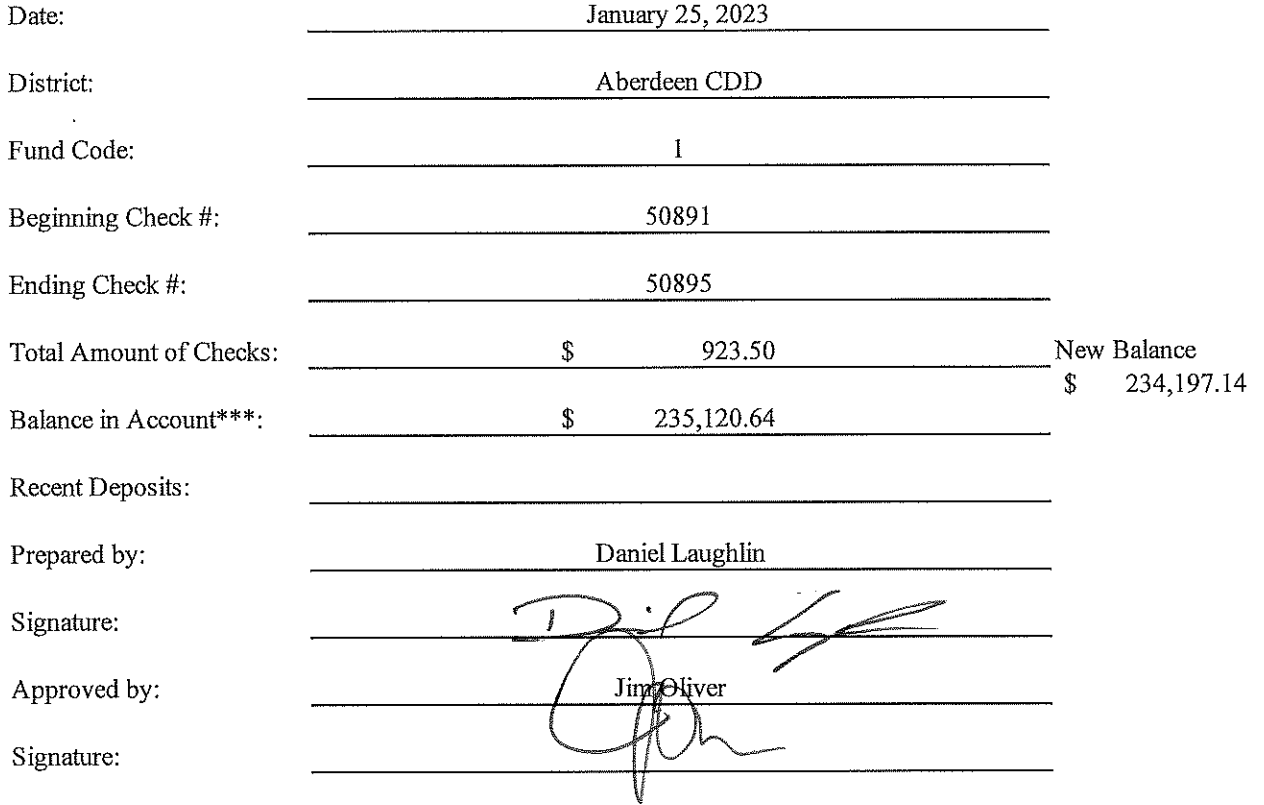 Date: January 25, 2023
District: Aberdeen CDD
Fund Code: 1
Beginning Check #: 50891
Ending Check #: 50895
Total Amount of Checks: $ 923.50 New Balance
$ 234,197.14
Balance in Account***: $ 235,120.64
Recent Deposits:
Prepared by: Daniel Laughlin
Signature:
Approved by: Jim Oliver
Signature: